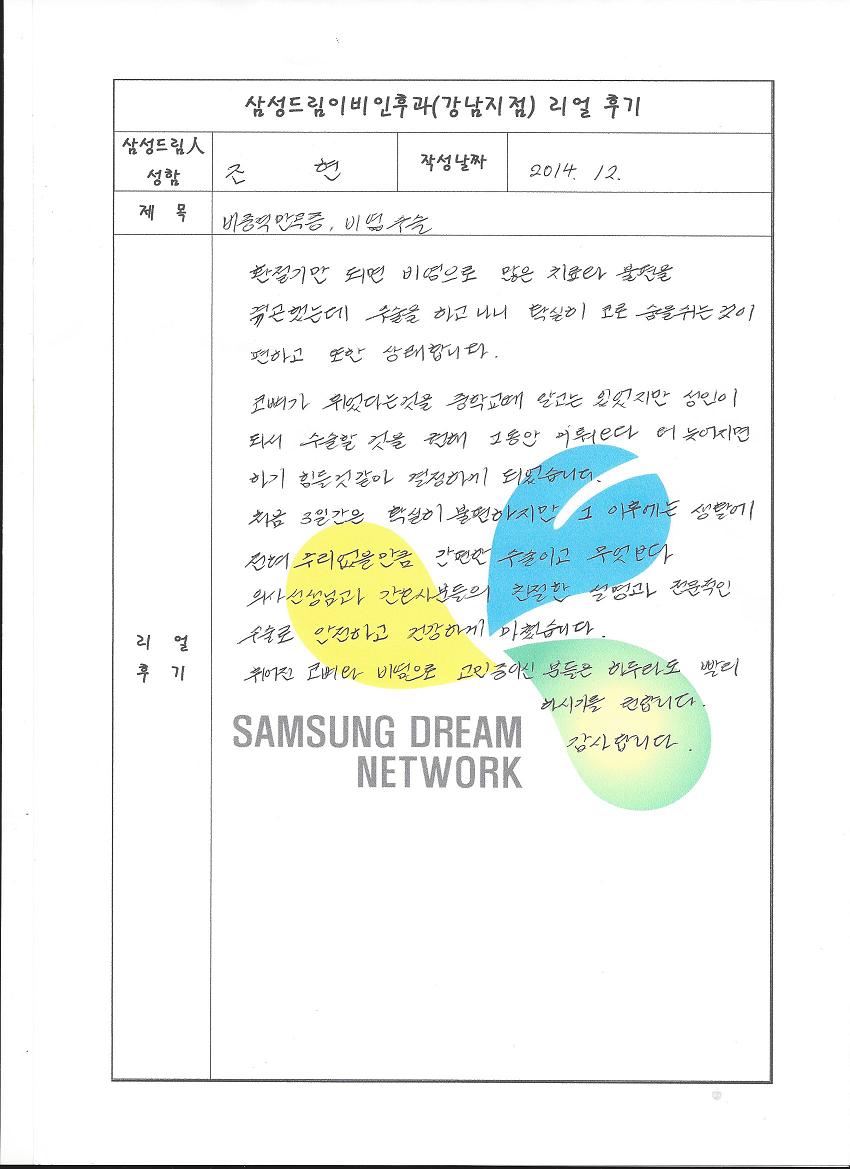 삼성드림이비인후과(강남지점) 리얼 후기
삼성드림人 성함
조 현
작성날짜
2014. 12.
제 목
비중격만곡증, 비염수술
리 얼
후 기
환절기만 되면 비염으로 많은 치료와 불편을
겪곤했는데 수술을 하고나니 확실히 코로 숨을쉬는 것이
편하고 또한 상쾌합니다.
코뼈가 휘었다는것을 중학교때 알고는 있었지만 성인이
되서 수술할 것을 권해 그동안 미뤄오다 더 늦어지면
하기 힘들것같아 결정하게 되었습니다.
처음 3일간은 확실히 불편하지만 그 이후에는 생활에
전혀 무리없을만큼 간편한 수술이고 무엇보다
의사선생님과 간호사분들의 친절한 설명과 전문적인
수술로 안전하고 건강하게 마쳤습니다.
휘어진 코뼈와 비염으로 고민중이신 분들은 하루라도 빨리
하시기를 권합니다.
감사합니다.
SAMSUNG DREAM
NETWORK